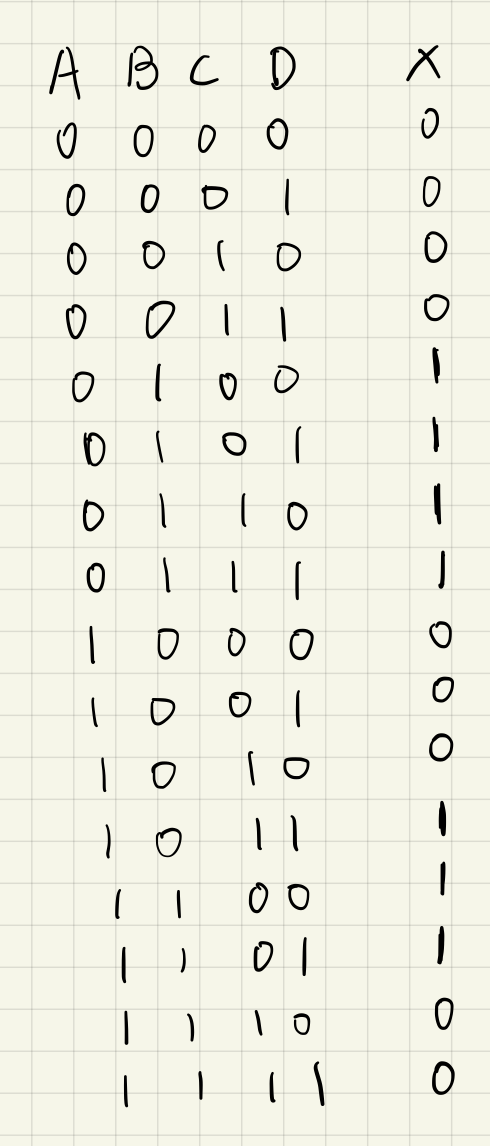 A B C D X
0 0 0 0 0
0 0 0 1 0
0 0 1 0 0
0 0 1 1 0
0 1 0 0 1
0 1 0 1 1
0 1 1 0 1
0 1 1 1 1
1 0 0 0 0
1 0 0 1 0
1 0 1 0 0
1 0 1 1 1
1 1 0 0 1
1 1 0 1 1
1 1 1 0 0
1 1 1 1 0